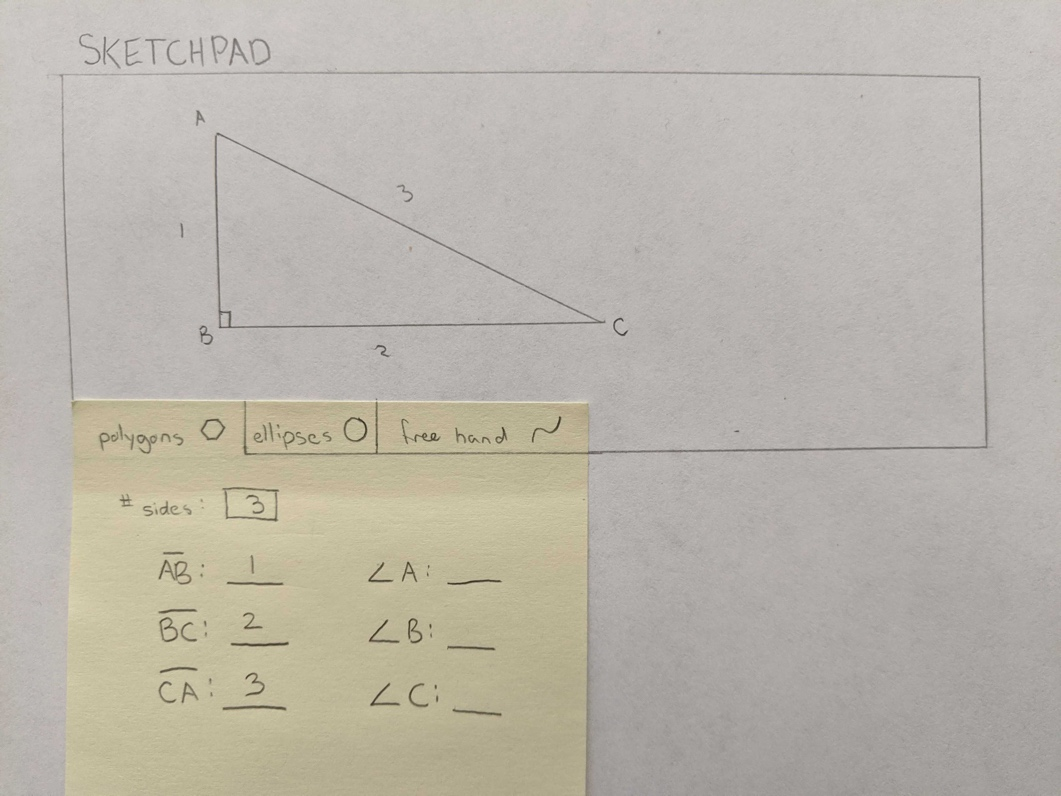 SKETCHPAD
A
3
1
B
C
2
polygons ellipses free hand
# sides: 3
AB: 1 ∠A: __
BC: 2 ∠B: __
CA: 3 ∠C: __